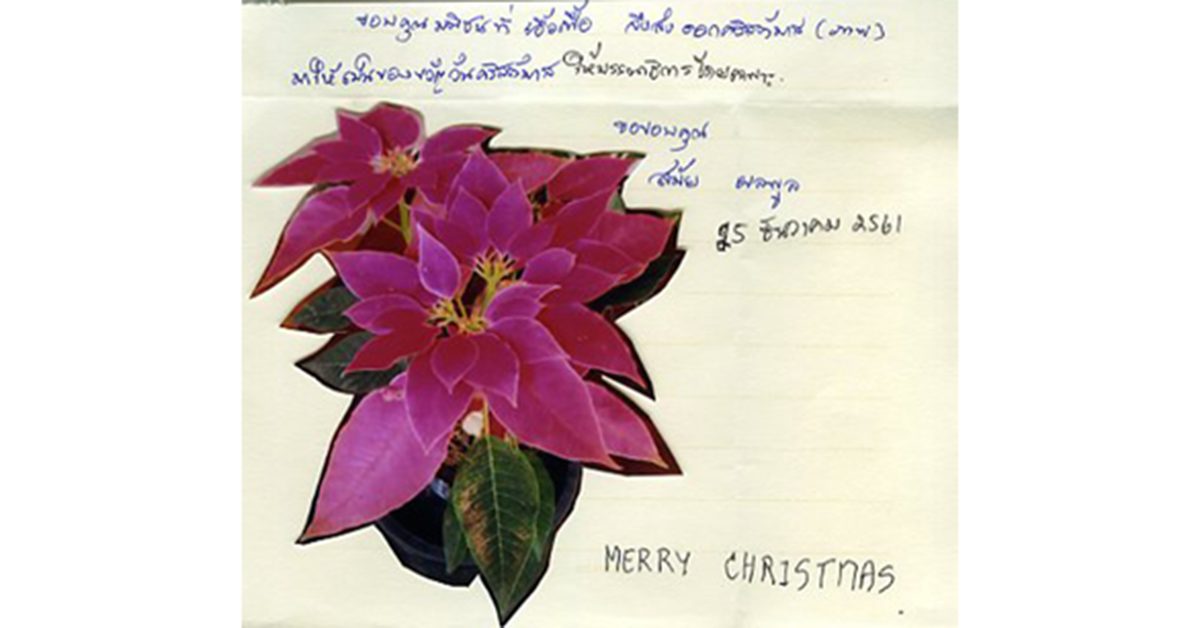 ขอบคุณ มติชนที่ เอื้อเฟื้อ ส่ง ดอกคริสต์มาส (ภาพ)
มาให้เป็นของขวัญวันคริสต์มาส ให้บรรณาธิการโดยเฉพาะ.
ขอขอบคุณ
สมัย ผลพูล
25 ธันวาคม 2561
MERRY CHRISTMAS